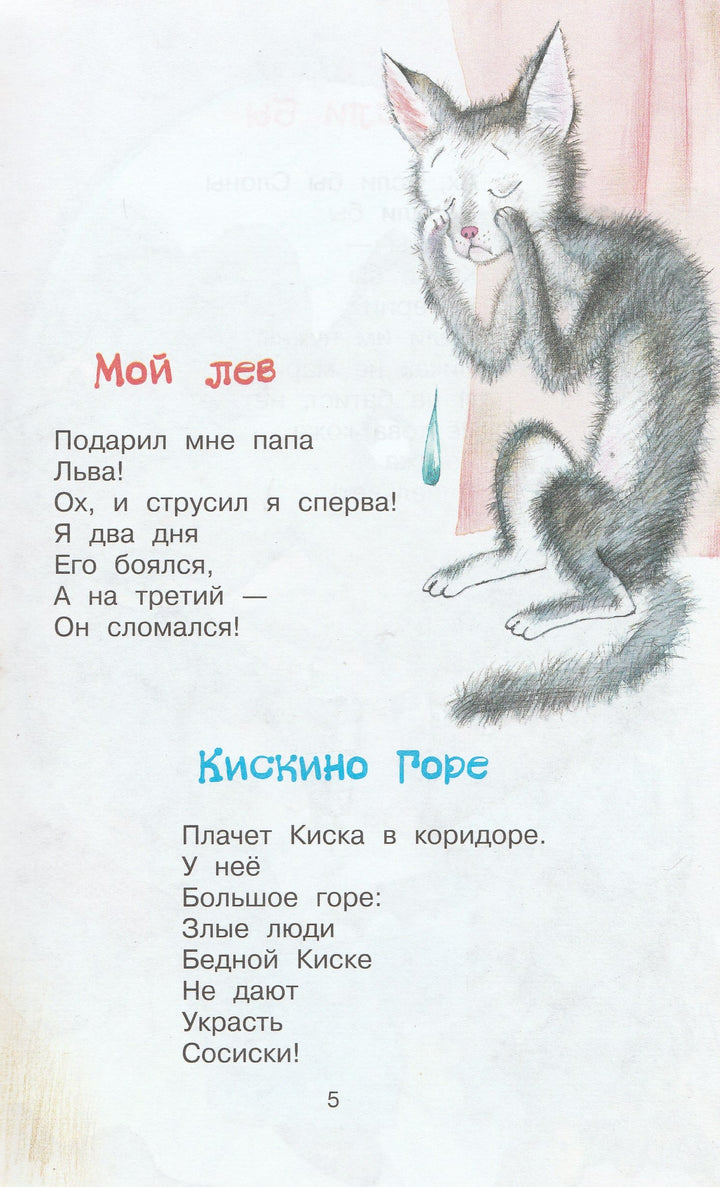 Мой лев
Подарил мне папа
Льва!
Ох, и струсил я сперва!
Я два дня
Его боялся,
А на третий —
Он сломался!
Кискино горе
Плачет Киска в коридоре.
У неё
Большое горе:
Злые люди
Бедной Киске
Не дают
Украсть
Сосиски!
5